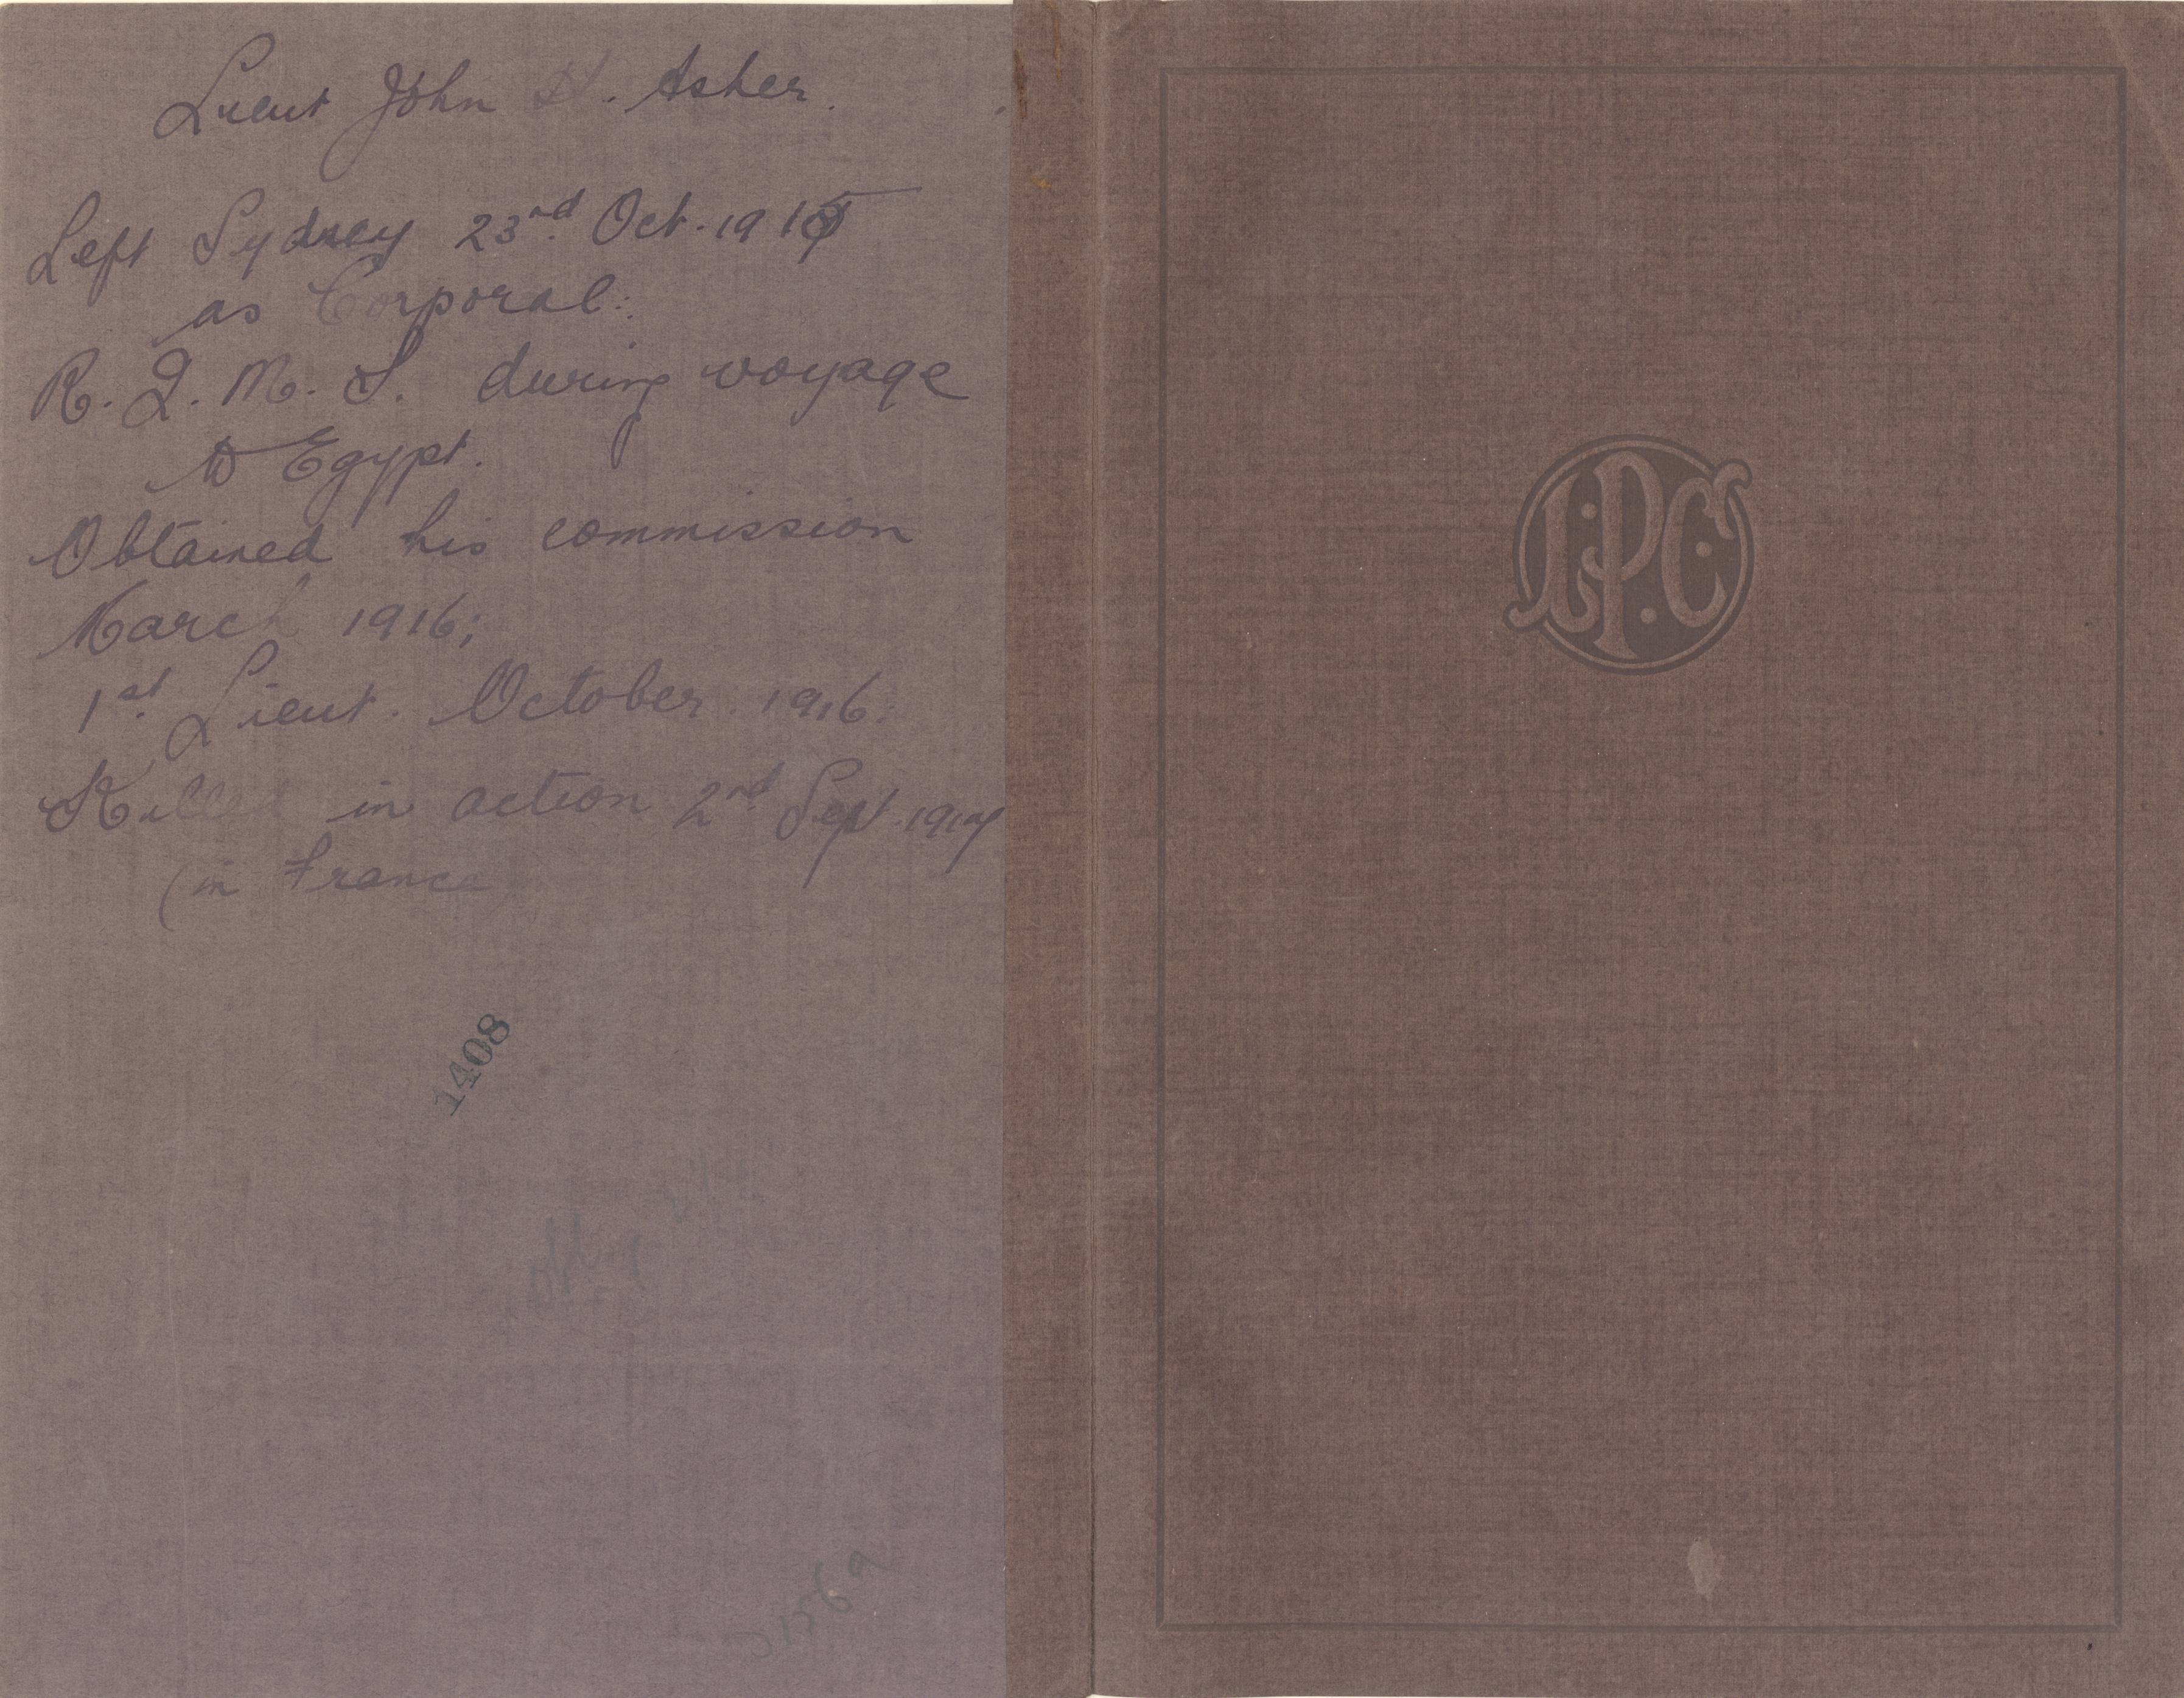 Lieut John H. Asher.
Left Sydney 23rd Oct. 1915
as Corporal.
R. Q. M. S. during voyage
to Egypt.
Obtained his commission
March 1916;
1st Lieut. October 1916.
Killed in action 2nd Sept. 1917
(in France)
1408
L.P.C.